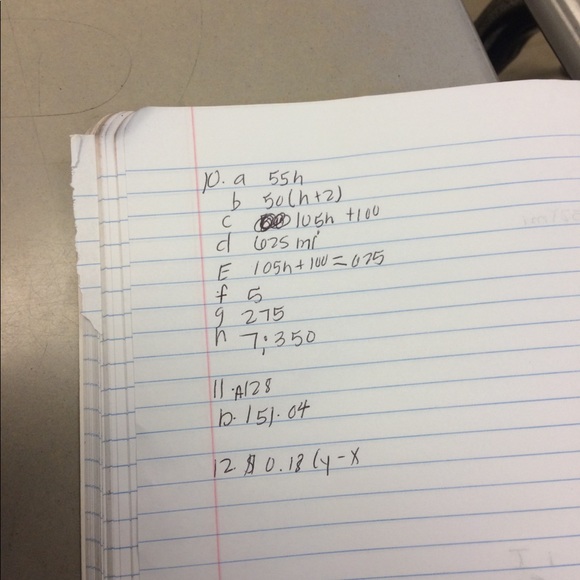 10. a 55h
b 50(h+2)
c 105h +100
d 625 mi
E 105h+100=625
f 5
g 275
h 7; 350
11. A128
b. 151.04
12. $ 0.18 (y-x